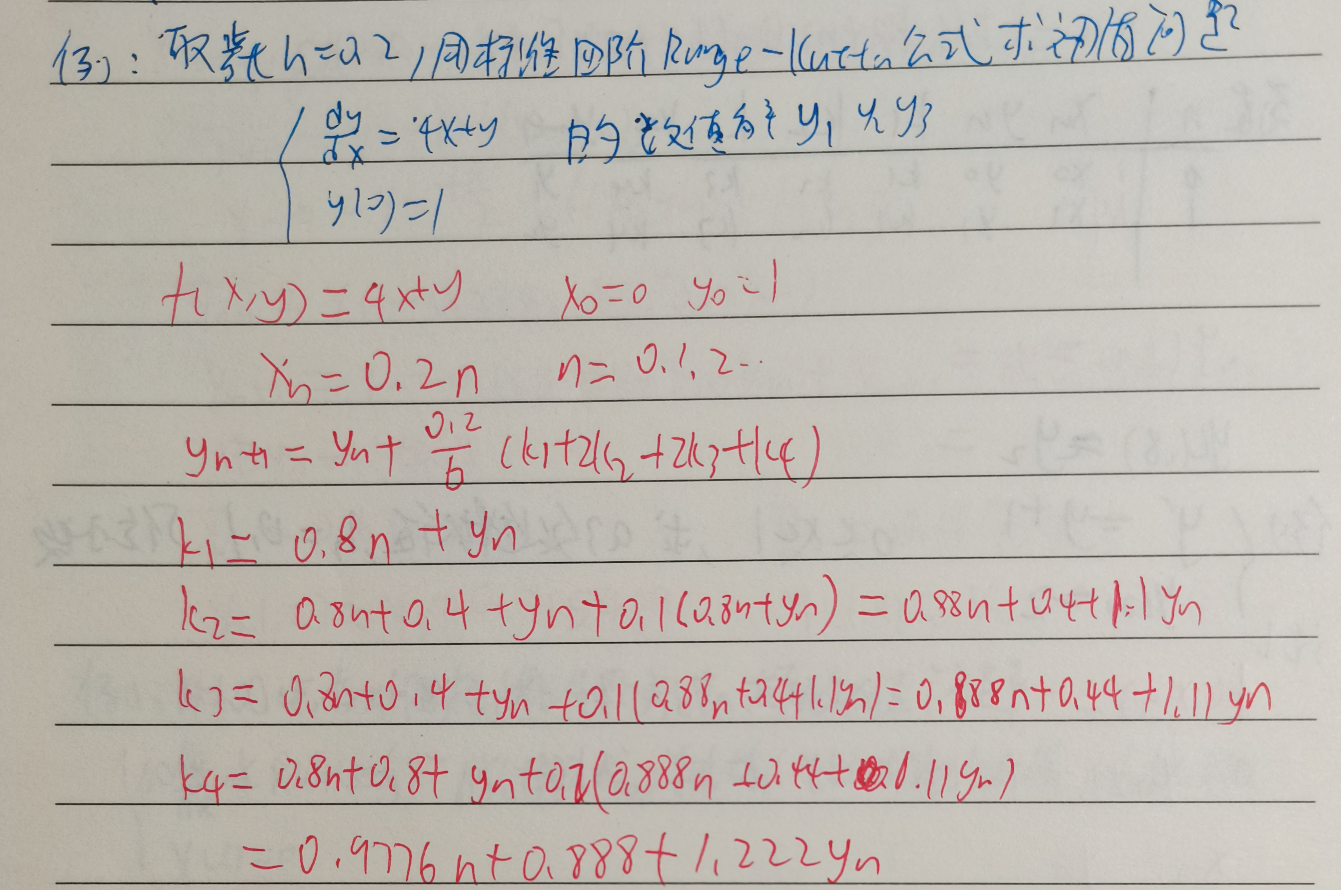 例: 取步长h=0.2,用标准四阶Runge-Kutta公式求初值问题
dy/dx = 4x+y 的数值解 y1 y2 y3
y(0)=1
f(x,y)=4x+y x0=0 y0=1
xn=0.2n n=0.1.2..
yn+1=yn+0.2/6(k1+2k2+2k3+k4)
k1=0.8n+yn
k2=0.8n+0.4+yn+0.1(0.8n+yn)=0.88n+0.4+1.1yn
k3=0.8n+0.4+yn+0.1(0.88n+0.4+1.1yn)=0.888n+0.44+1.11yn
k4=0.8n+0.8+yn+0.2(0.888n+0.44+1.11yn)
=0.9776n+0.888+1.222yn